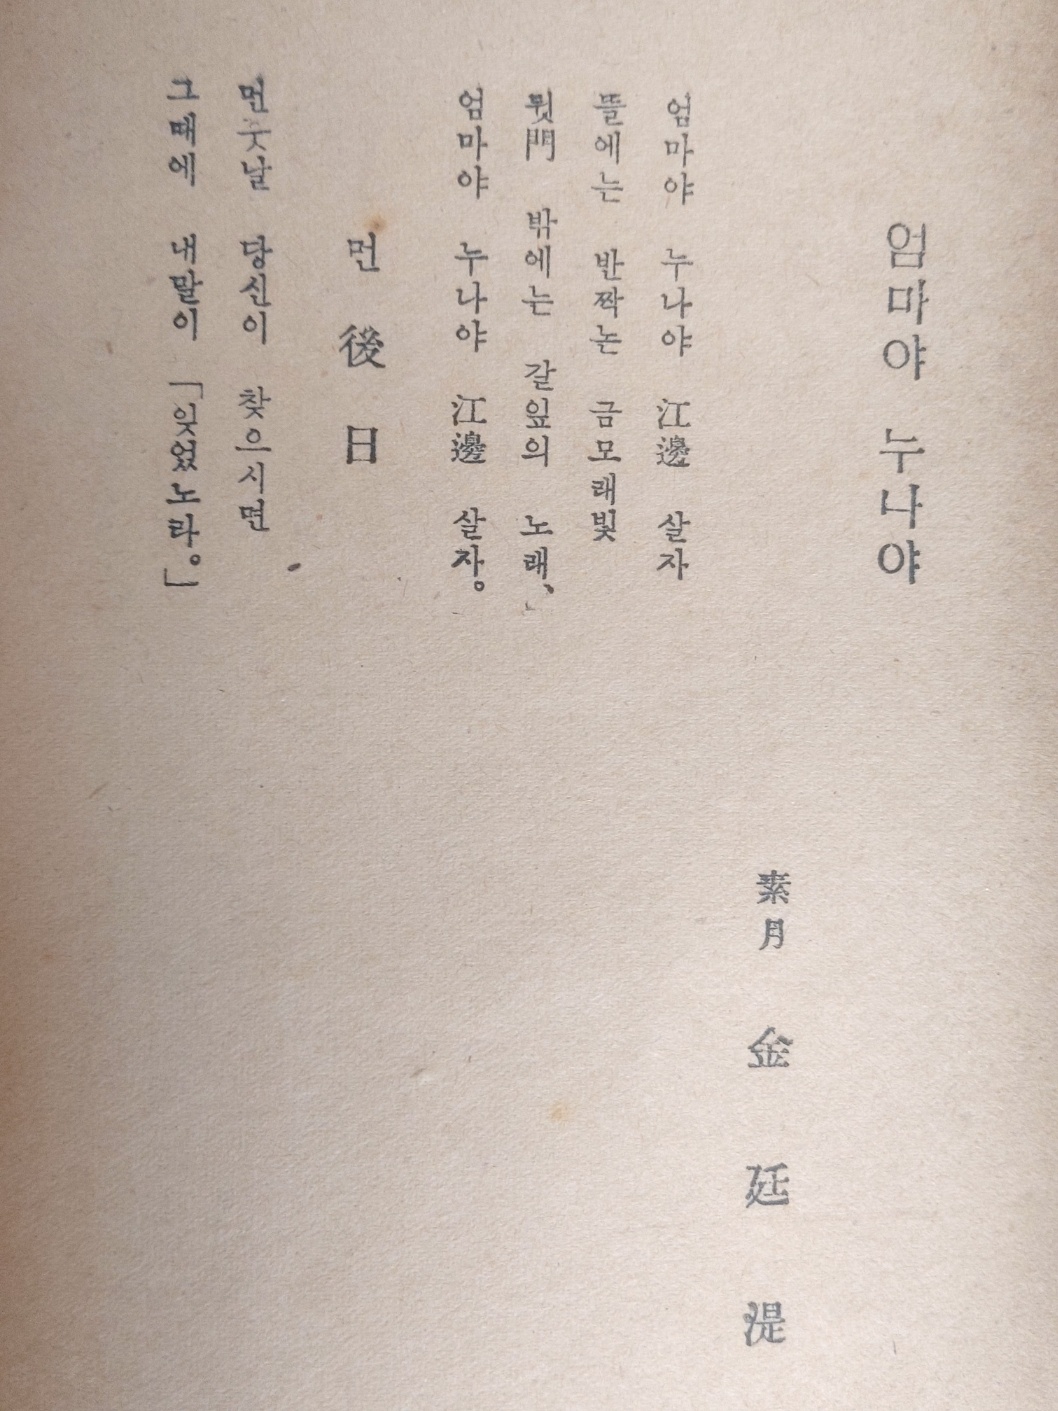 엄마야 누나야
素月 金廷湜
엄마야 누나야 江邊 살자
뜰에는 반짝는 금모래빛
뒷門 밖에는 갈잎의 노래、
엄마야 누나야 江邊 살자。
먼 後日
먼 훗날 당신이 찾으시면
그때에 내말이 「잊었노라。」